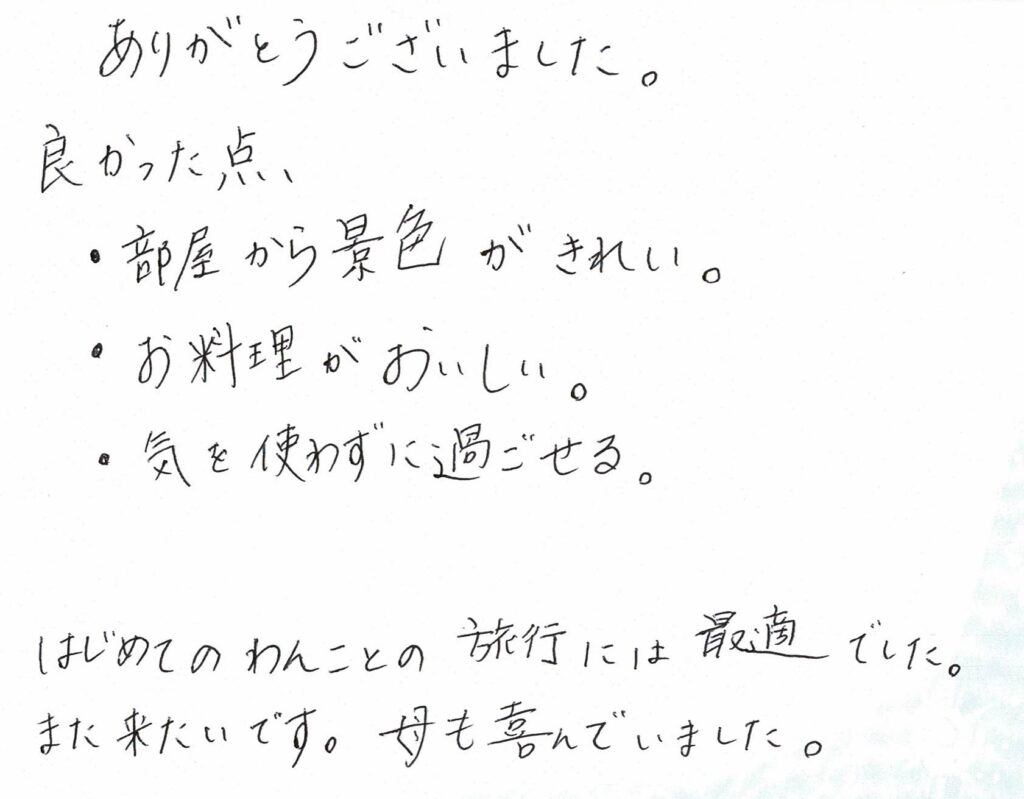 ありがとうございました。
良かった点、
・部屋から景色がきれい。
・お料理がおいしい。
・気を使わずに過ごせる。
はじめてのわんことの旅行には最適でした。
また来たいです。母も喜んでいました。